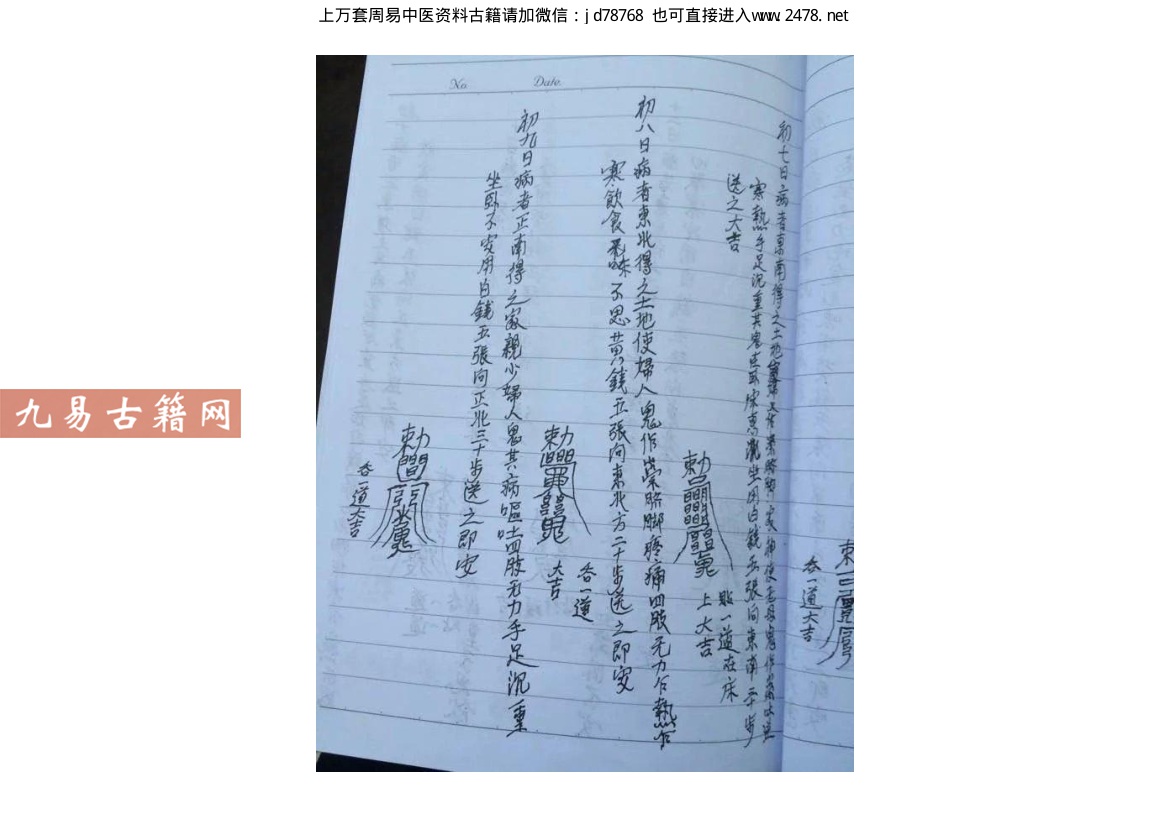 上万套周易中医资料古籍请加微信：jd78768 也可直接进入www.2478.net
九易古籍网
No.
Date.
初七日病者東南得之土地
寒熱手足沉重其鬼在床坐用白錢五張向東南三十步
送之大吉
貼一道在床
上大吉
初八日病者東北得之土地使婦人鬼作祟脇脚疼痛四肢无力乍熱乍
寒飲食無味不思黄錢五張向東北方二十步送之即安
吞一道
大吉
初九日病者正南得之家親少婦人鬼其病嘔吐四肢无力手足沉重
坐卧不安用白錢五張向正北三十步送之即安
吞一道大吉
吞一道大吉